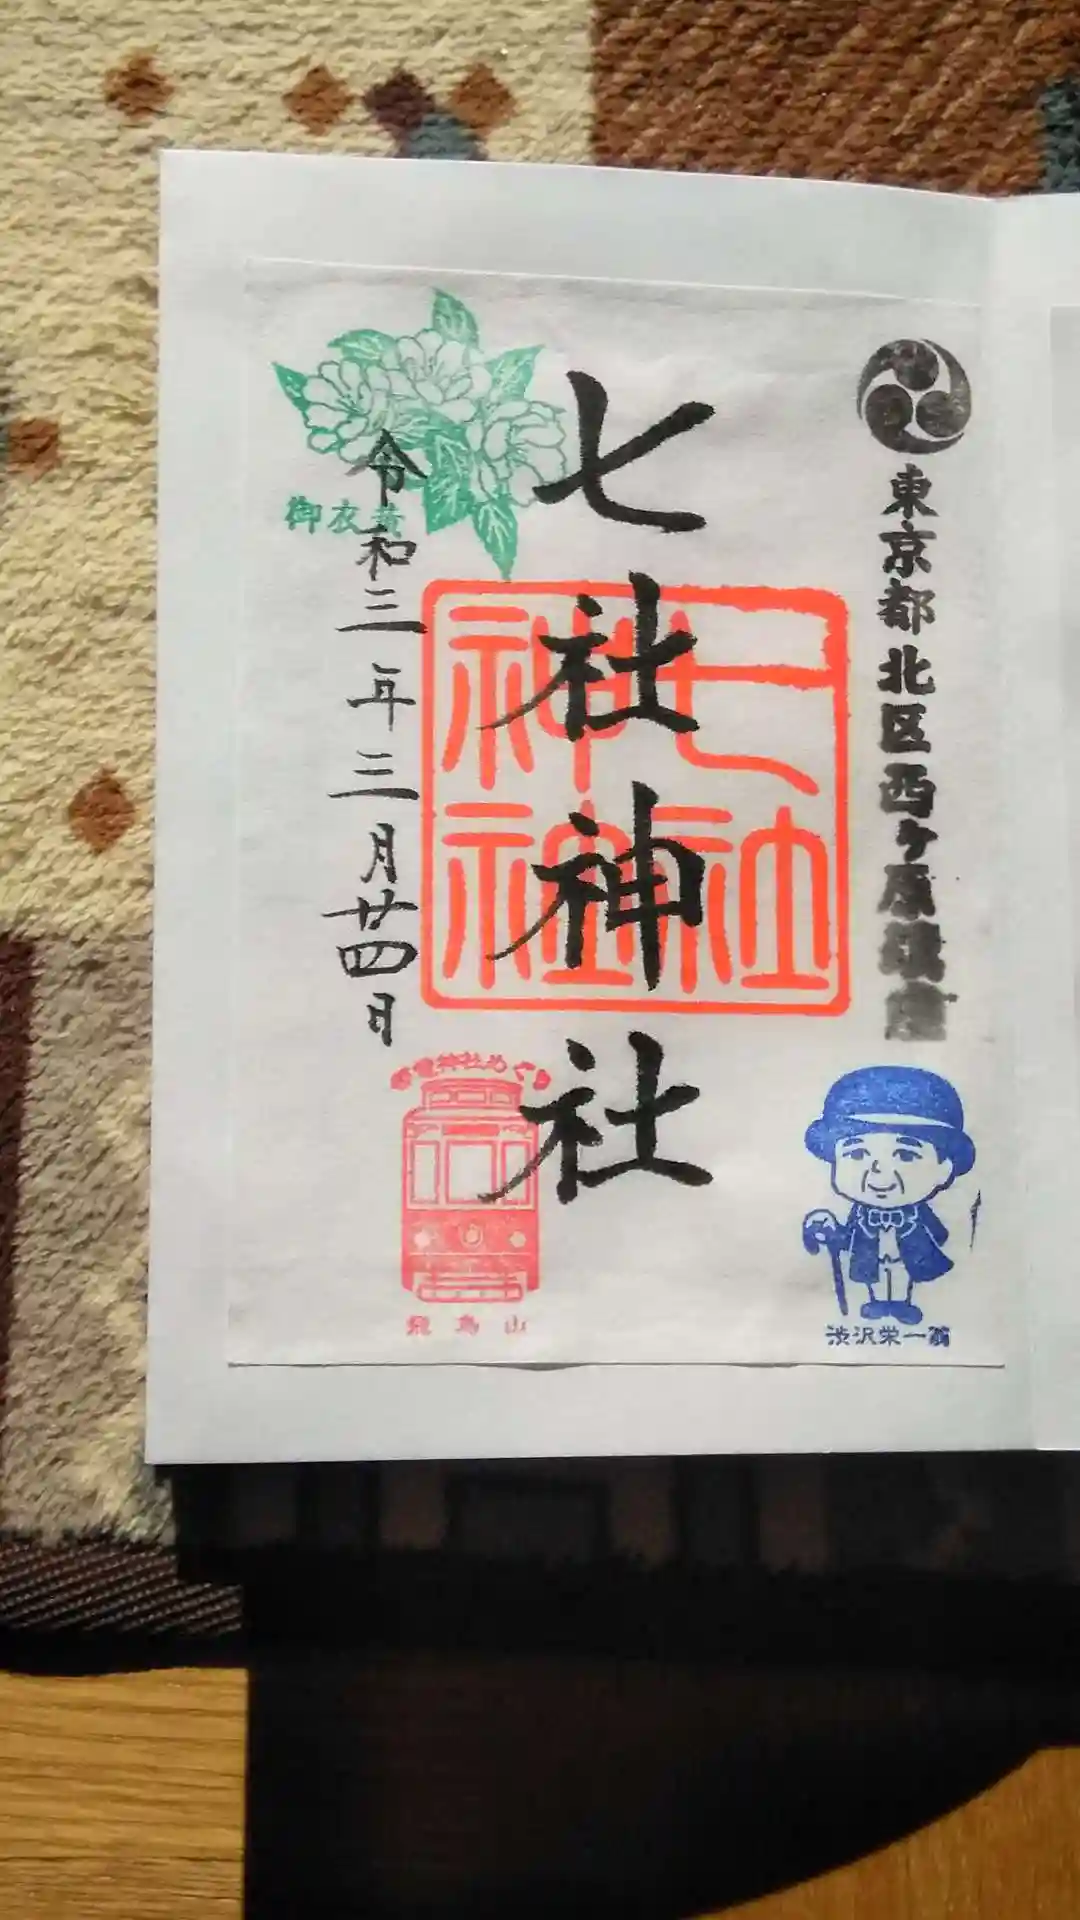 東京都北区西ヶ原鎮座
七社神社
七社神社
令和三年三月廿四日
御衣黄
神社めぐり
飛鳥山
渋沢栄一翁